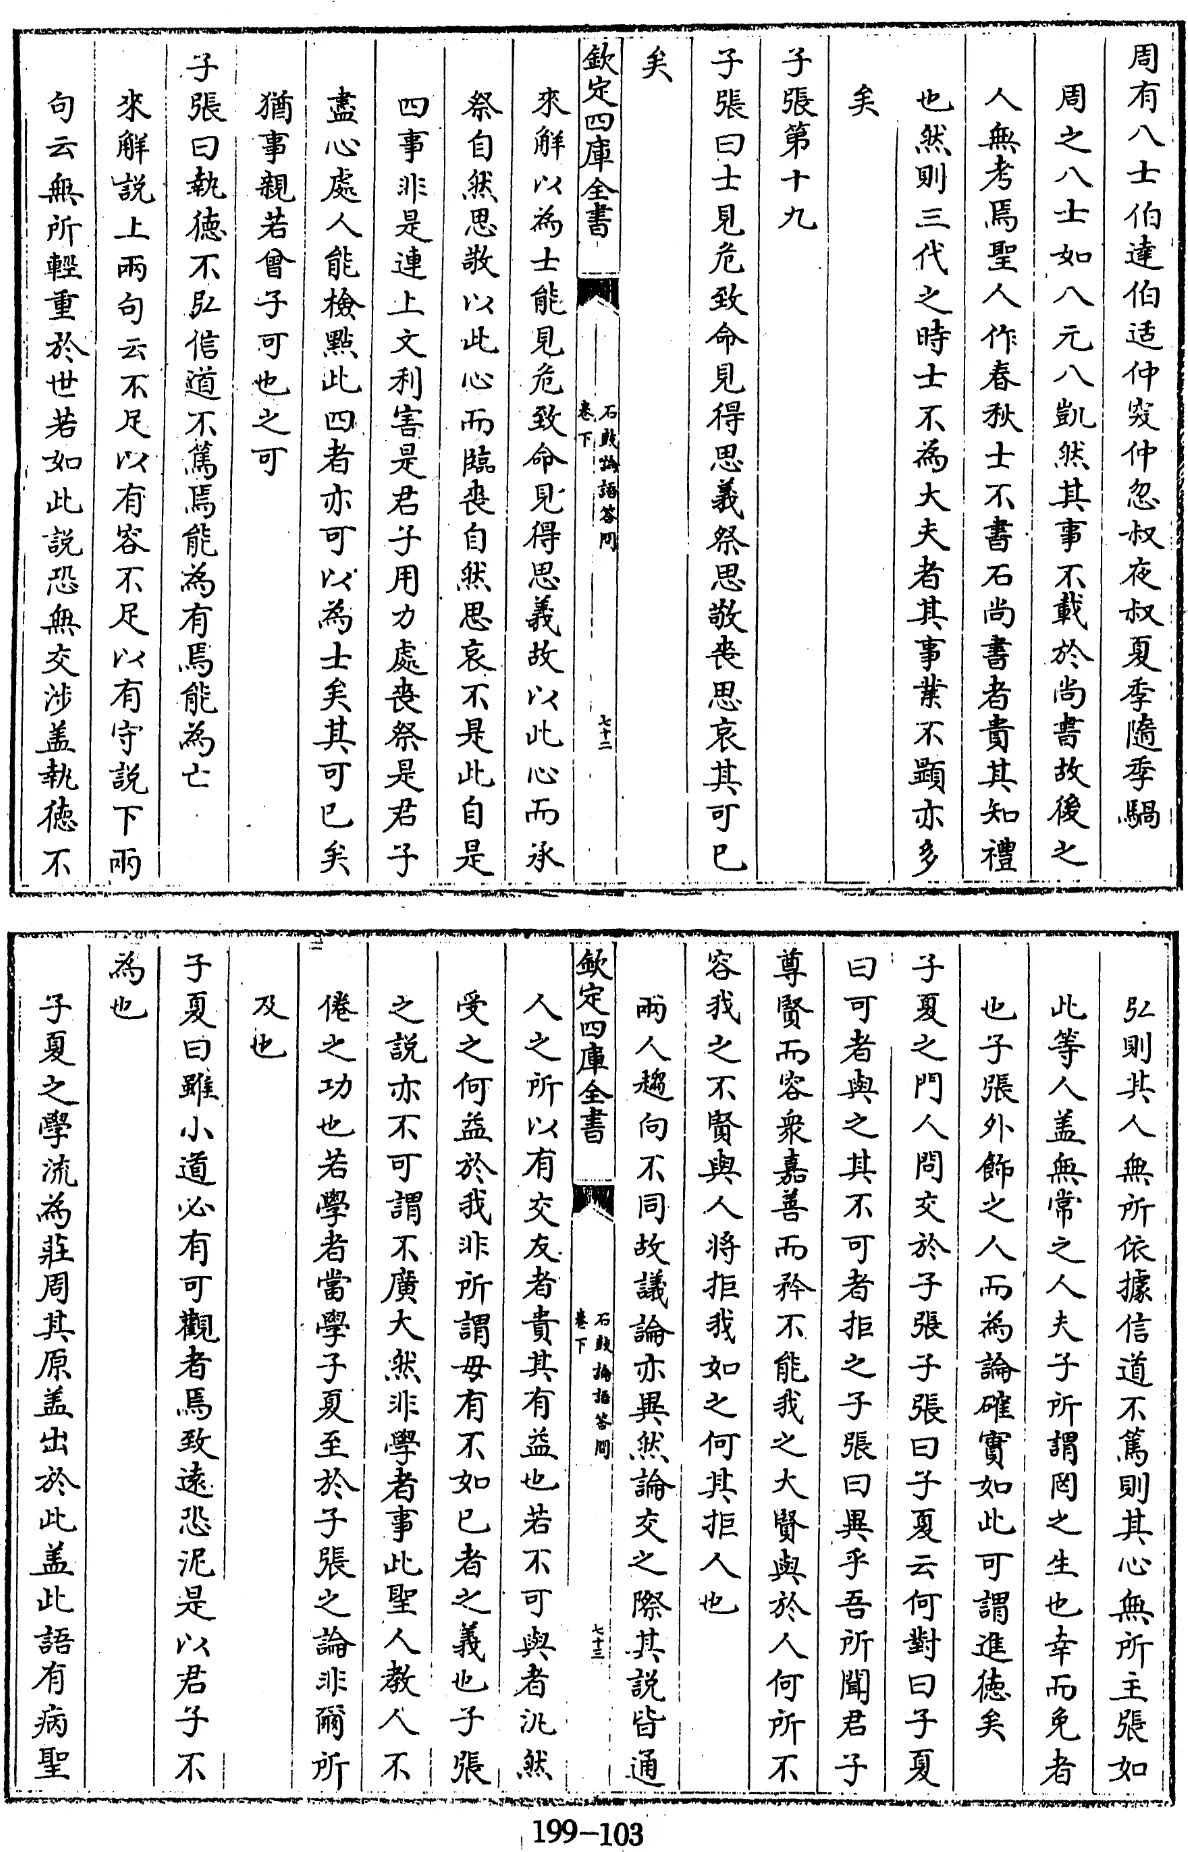 周有八士伯達伯适仲突仲忽叔夜叔夏季隨季騧
周之八士如八元八凱然其事不載於尚書故後之
人無考焉聖人作春秋士不書石尚書者貴其知禮
也然則三代之時士不為大夫者其事業不顯亦多
矣
子張第十九
子張曰士見危致命見得思義祭思敬喪思哀其可已
矣
欽定四庫全書
石鼓論語答問
卷下
七十二
來解以為士能見危致命見得思義故以此心而承
祭自然思敬以此心而臨喪自然思哀不是此自是
四事非是連上文利害是君子用力處喪祭是君子
盡心處人能檢點此四者亦可以為士矣其可已矣
猶事親若曾子可也之可
子張曰執德不弘信道不篤焉能為有焉能為亡
來解説上兩句云不足以有容不足以有守説下兩
句云無所輕重於世若如此説恐無交涉蓋執德不
弘則其人無所依據信道不篤則其心無所主張如
此等人蓋無常之人夫子所謂罔之生也幸而免者
也子張外飾之人而為論確實如此可謂進德矣
子夏之門人問交於子張子張曰子夏云何對曰子夏
曰可者與之其不可者拒之子張曰異乎吾所聞君子
尊賢而容衆嘉善而矜不能我之大賢與於人何所不
容我之不賢與人將拒我如之何其拒人也
兩人趨向不同故議論亦異然論交之際其説皆通
欽定四庫全書
石鼓論語答問
卷下
七十三
人之所以有交友者貴其有益也若不可與者汎然
受之何益於我非所謂毋有不如已者之義也子張
之説亦不可謂不廣大然非學者事此聖人教人不
倦之功也若學者當學子夏至於子張之論非爾所
及也
子夏曰雖小道必有可觀者焉致遠恐泥是以君子不
為也
子夏之學流為莊周其原蓋出於此蓋此語有病聖
199-103